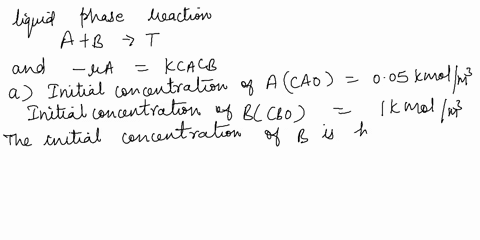 liquid phase reaction
A+B → T
and -rA = KCACB
a) Initial concentration of A(CAO) = 0.05 kmol/m³
Initial concentration of B(CBO) = 1kmol/m³
The initial concentration of B is h